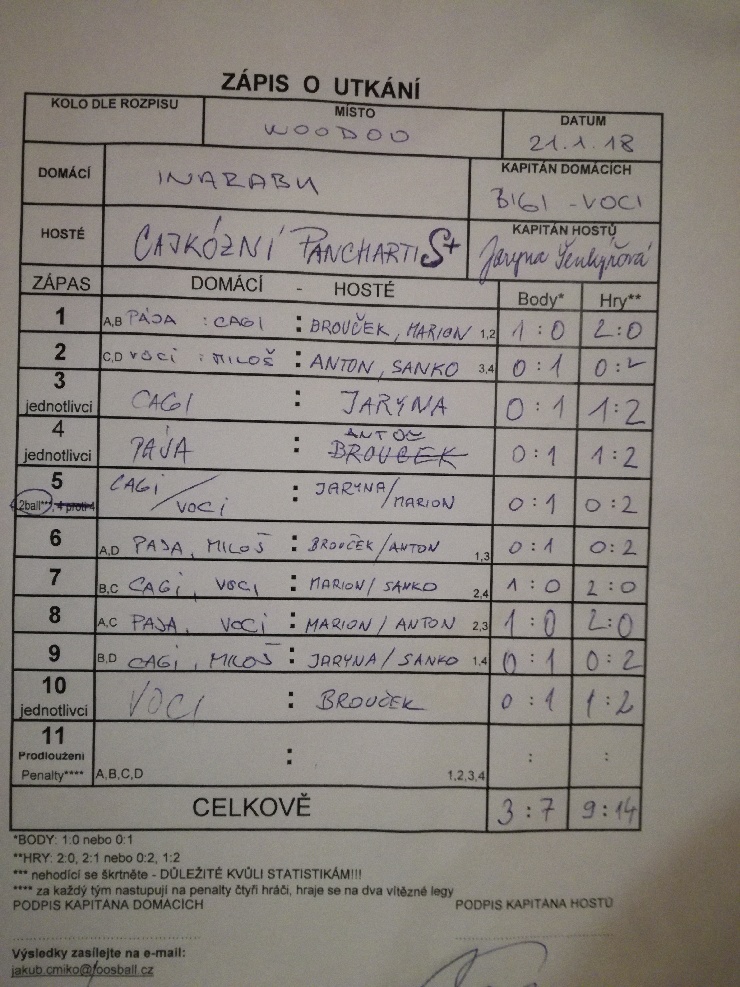 ZÁPIS O UTKÁNÍ
KOLO DLE ROZPISU MÍSTO DATUM
WOODOO 21.1.18
DOMÁCÍ INARABU KAPITÁN DOMÁCÍCH
BIGI - VOCI
HOSTÉ CAJKÓZNÍ PANCHARTI S+ KAPITÁN HOSTŮ
Jaryna
ZÁPAS DOMÁCÍ - HOSTÉ Body* Hry**
1 A,B PÁJA : CAGI : BROUČEK, MARION 1,2 1 : 0 2 : 0
2 C,D VOCI : MILOŠ : ANTON, SANKO 3,4 0 : 1 0 : 2
3 jednotlivci CAGI : JARYNA 0 : 1 1 : 2
4 jednotlivci PÁJA : ANTON BROUČEK 0 : 1 1 : 2
5 2ball***, 4 proti 4 CAGI / VOCI : JARYNA / MARION 0 : 1 0 : 2
6 A,D PAJA, MILOŠ : BROUČEK / ANTON 1,3 0 : 1 0 : 2
7 B,C CAGI, VOCI : MARION / SANKO 2,4 1 : 0 2 : 0
8 A,C PAJA, VOCI : MARION / ANTON 2,3 1 : 0 2 : 0
9 B,D CAGI, MILOŠ : JARYNA / SANKO 1,4 0 : 1 0 : 2
10 jednotlivci VOCI : BROUČEK 0 : 1 1 : 2
11 Prodloužení : : :
Penalty**** A,B,C,D 1,2,3,4
CELKOVĚ 3 : 7 9 : 14
*BODY: 1:0 nebo 0:1
**HRY: 2:0, 2:1 nebo 0:2, 1:2
*** nehodící se škrtněte - DŮLEŽITÉ KVŮLI STATISTIKÁM!!!
**** za každý tým nastupují na penalty čtyři hráči, hraje se na dva vítězné legy
PODPIS KAPITÁNA DOMÁCÍCH PODPIS KAPITÁNA HOSTŮ
Výsledky zasílejte na e-mail:
jakub.cmiko@foosball.cz